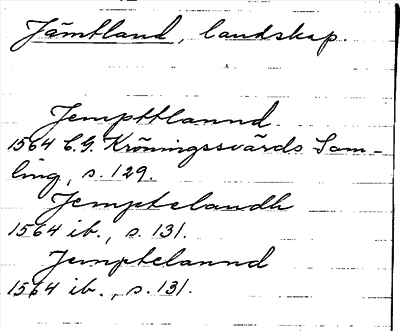 Jämtland, landskap.
Jempttlannd.
1564 C.G. Kröningssvärds Sam-
ling, s. 129.
Jemptelandh
1564 ib., s. 131.
Jemptelannd
1564 ib., s. 131.